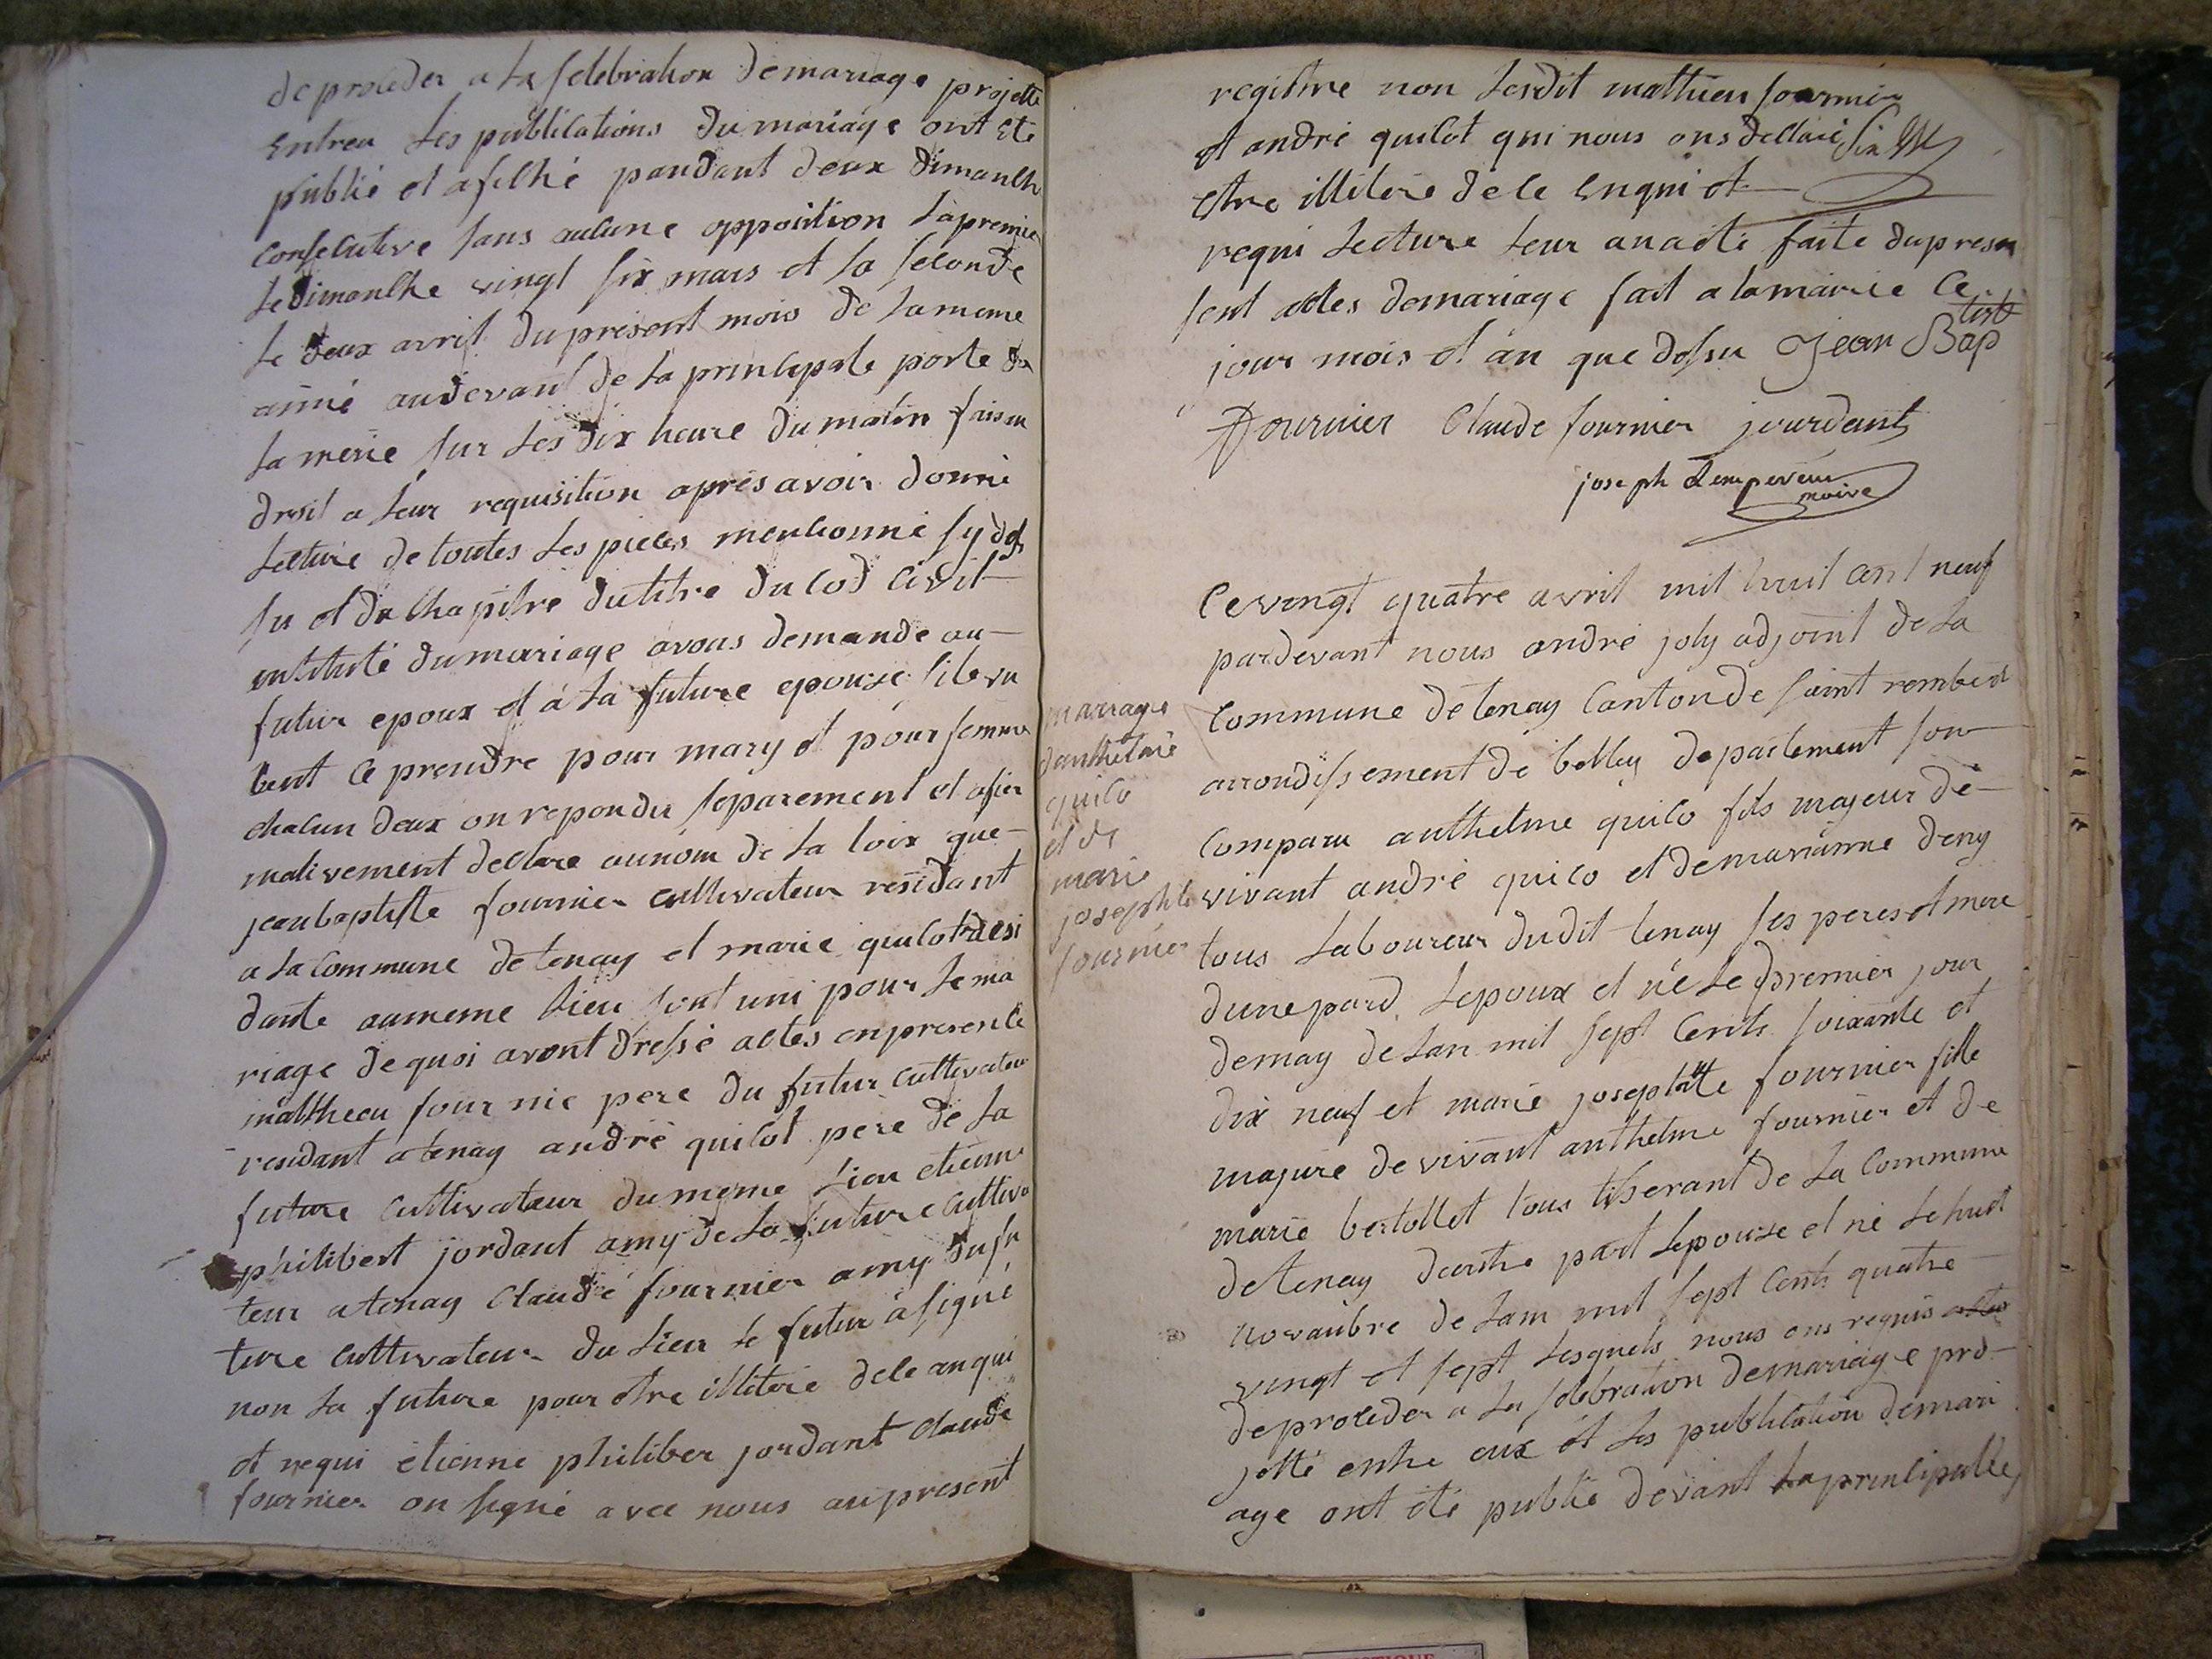 de proceder a la selebration de mariage projette
entreu les publications du mariage ont ete
publié et afiché pandant deux dimanch
consecutive sans aucune opposition la premie
le dimanche vingt six mars et la seconde
le deux avril du present mois de la meme
anné audevant de la principale porte de
la merie sur les dix heure du matin faisan
droit a leur requisition aprés avoir donné
lecture de toutes les pieces mentionné sy des
su et du chapitre du titre du cod civil
intitulé du mariage avons demande au
futur epoux et a la future epouse sile vu
lent ce prendre pour mary et pour femme
chacun deux on repondu separement et afir
mativement declare au nom de la loix que
jean baptiste fournier cultivateur residant
a la commune de tenay et marie quilot resi
dante au meme lieu sont uni pour le ma
riage de quoi avont dressé actes en presence
mattheeu fournie pere du futur cultivateur
residant a tenay andré quilot pere de la
future cultivateur du meme lieu etienne
philibert jordant amy de la future cultiva
teur a tenay Claude fournier amy du fu
ture cultivateur du lieu le futur a signé
non la future pour etre illitere de ce anqui
et requi etienne philiber jordant claude
fournier on signé avec nous au present
registre non lesdit mathieu fournier
et andré quilot qui nous ons dellaré
etre illitere de ce enqui et
requi lecture leur an aété faite du presen
sent actes de mariage fait a la mairie ce
jour mois et an que desu Jean Bap
tiste
fournier Claude fournier jourdant
joseph Lempereur
maire
mariage
danthelme
quilo
et de
marie
josephte
fournier
Ce vingt quatre avril mil huit cent neuf
pardevant nous andré joly adjoint de la
commune de tenay Canton de saint rembert
arrondissement de belley departement son
comparu anthelme quilo fils majeur de
vivant andré quilo et de marianne deny
tous laboureur dudit tenay ses peres et mere
dune pard. lepoux et né le premier jour
de may de lan mil sept cents soixante et
dix neuf et marie josephte fournier fille
majure de vivant anthelme fournier et de
marie bertollet tous tiserant de la commune
de tenay dautre part lepouse et né le huit
novanbre de lam mil sept cents quatre
vingt et sept lesquels nous ons requis
de proceder a la selebration de mariage pro-
jetté entre eux et les publication de mari
age ont été publié devant la principalle